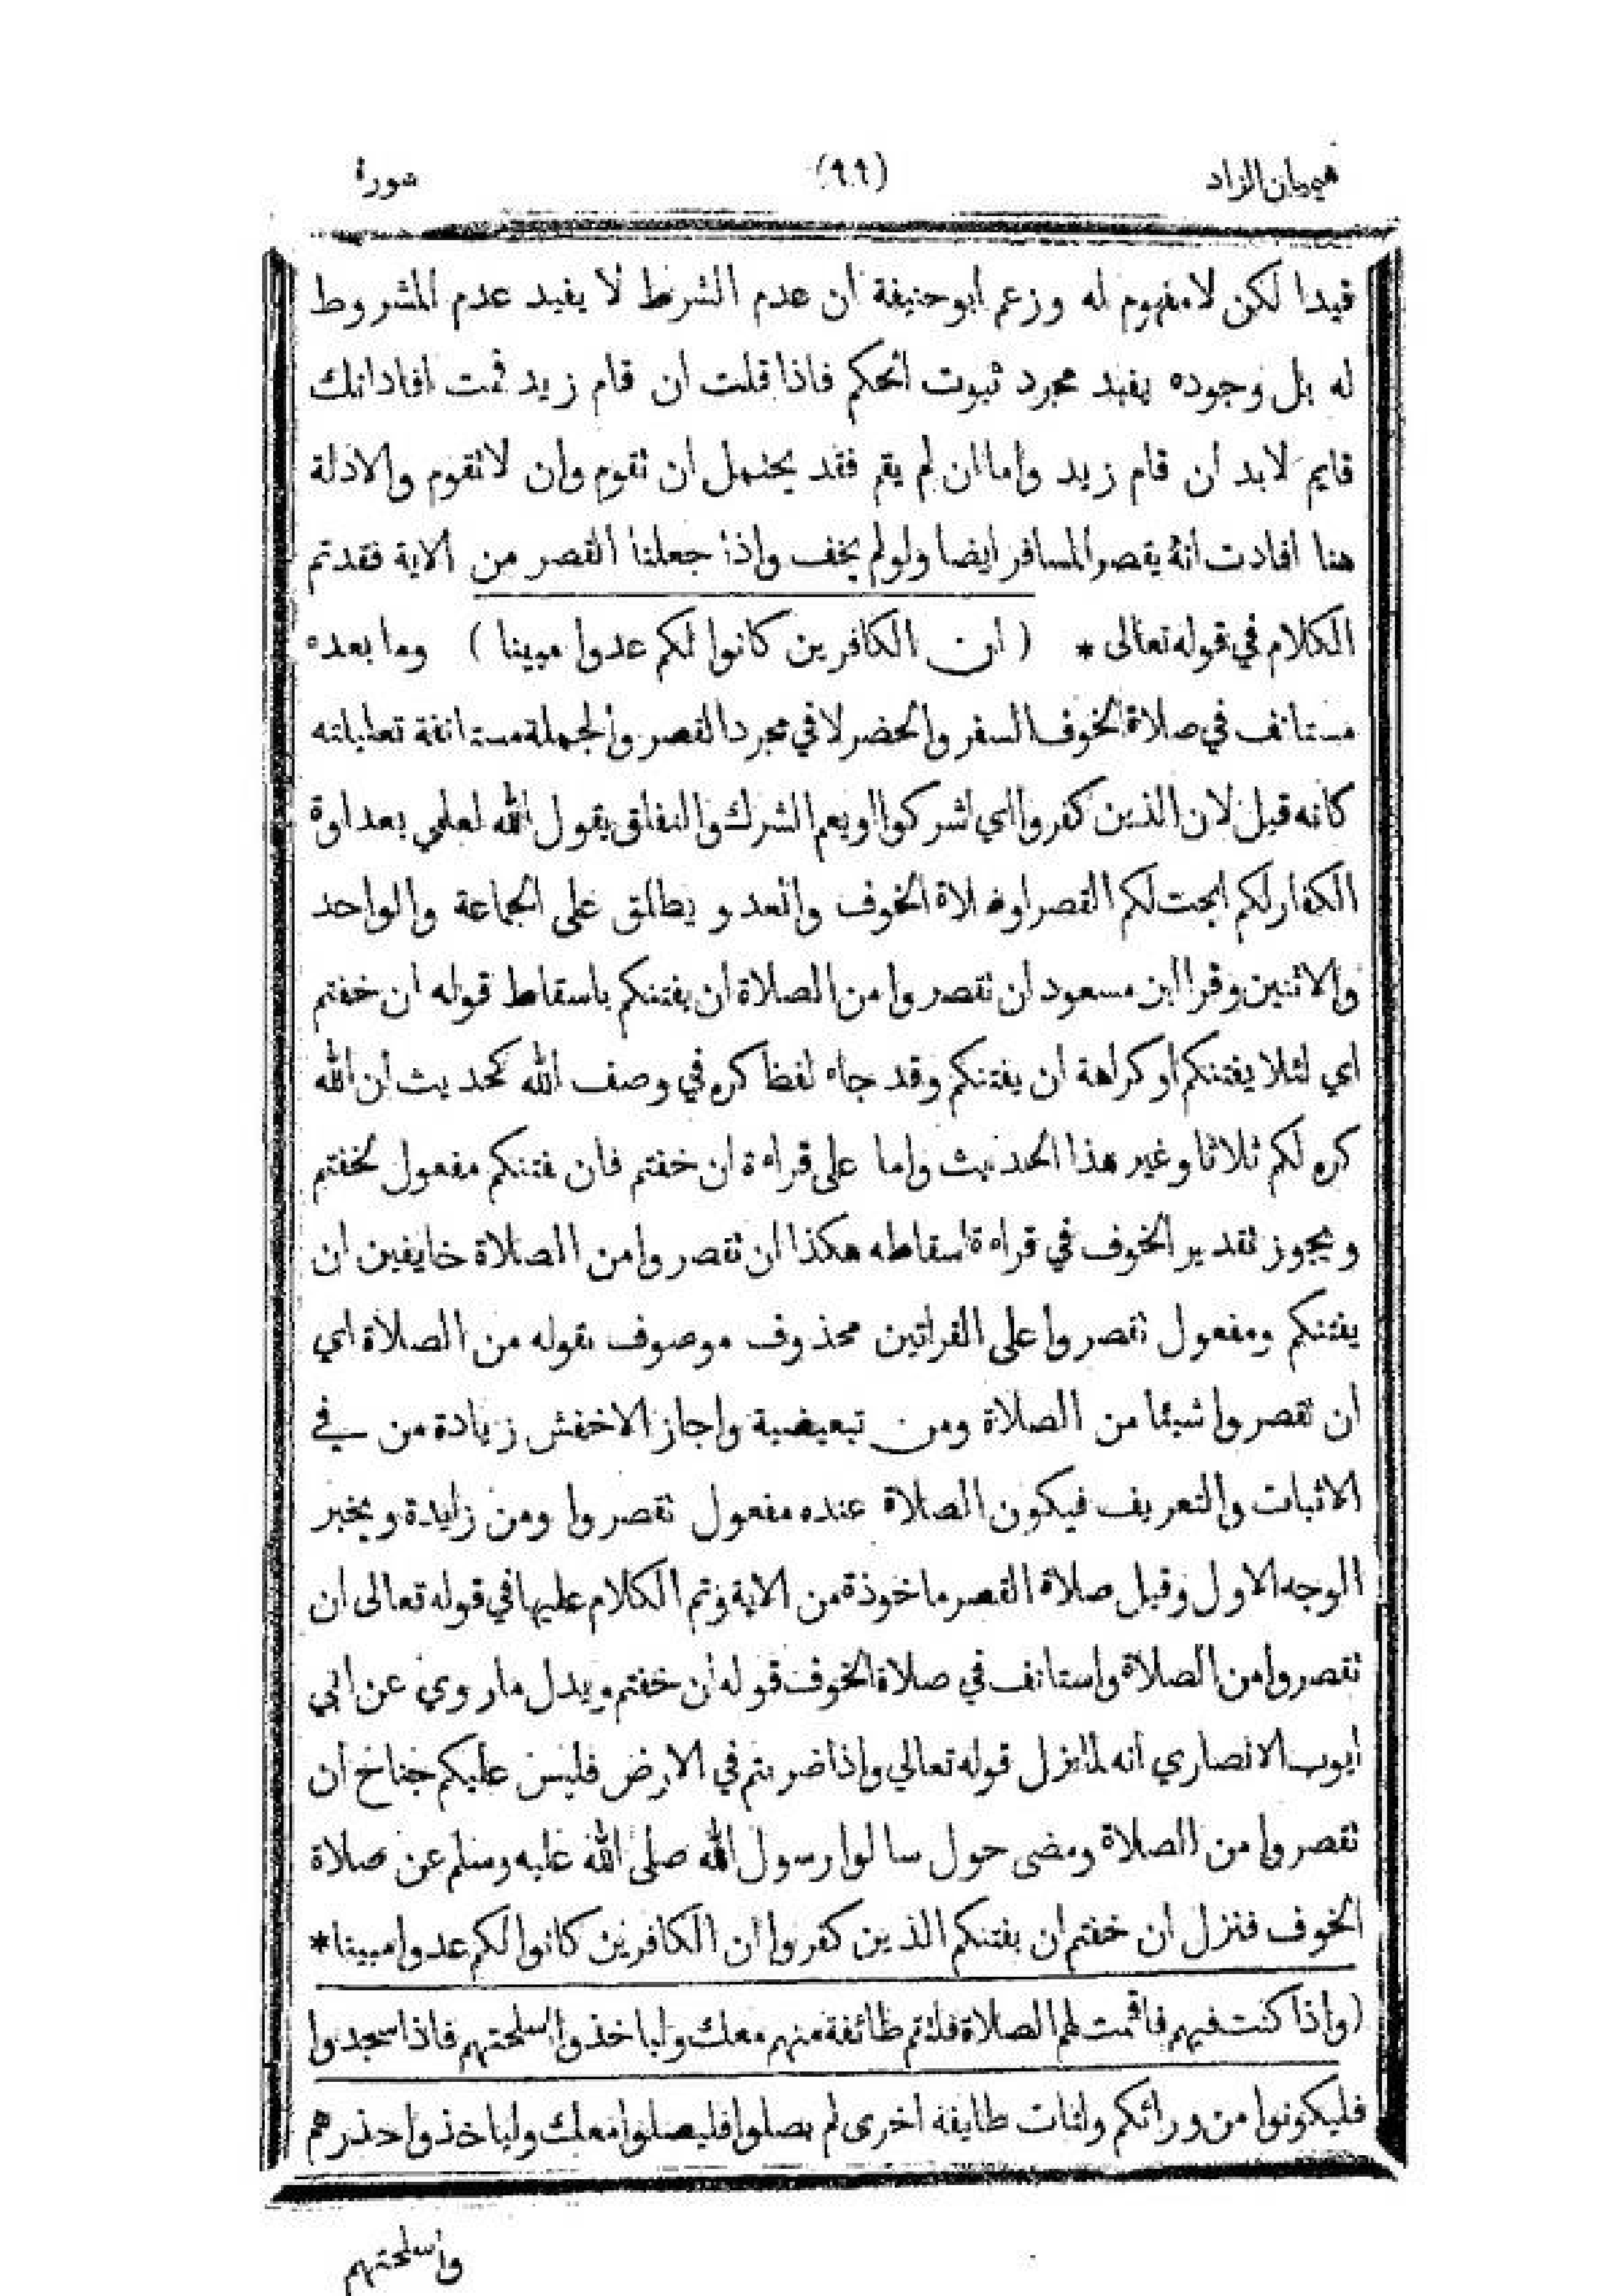 هيميان الزاد (٩٩) سورة
قيدا لكن لا مفهوم له وزعم ابو حنيفة ان عدم الشرط لا يفيد عدم المشروط
له بل وجوده يفيد مجرد ثبوت الحكم فاذا قلت ان قام زيد قمت افاد انك
قايم لابد ان قام زيد واما ان لم يقم فقد يحتمل ان تقوم وان لا تقوم والادلة
هنا افادت انه يقصر المسافر ايضا ولو لم يخف واذا جعلنا القصر من الاية فقد تم
الكلام في قوله تعالى * ( ان الكافرين كانوا لكم عدوا مبينا ) وما بعده
مستانف في صلاة الخوف السفر والحضر لا في مجرد القصر والجملة مستانفة تعليلته
كانه قيل لان الذين كفروا اي اشركوا او يعم الشرك والنفاق يقول الله لعلمي بعداوة
الكفار لكم ابحت لكم القصر او صلاة الخوف والعدو يطلق على الجماعة والواحد
والاثنين وقرا ابن مسعود ان تقصروا من الصلاة ان يفتنكم باسقاط قوله ان خفتم
اي لئلا يفتنكم او كراهة ان يفتنكم وقد جاء لفظ كره في وصف الله كحديث ان الله
كره لكم ثلاثا وغير هذا الحديث واما على قراءة ان خفتم فان فتنكم مفعول لخفتم
ويجوز تقدير الخوف في قراءة اسقاطه هكذا ان تقصروا من الصلاة خايفين ان
يفتنكم ومفعول تقصروا على القراتين محذوف موصوف بقوله من الصلاة اي
ان تقصروا شيئا من الصلاة ومن تبعيضية واجاز الاخفش زيادة من في
الاثبات والتعريف فيكون الصلاة عنده مفعول تقصروا ومن زايدة ويخبر
الوجه الاول وقيل صلاة القصر ماخوذة من الاية وتم الكلام عليها في قوله تعالى ان
تقصروا من الصلاة واستانف في صلاة الخوف قوله ان خفتم ويدل ما روي عن ابي
ايوب الانصاري انه لما نزل قوله تعالي واذا ضربتم في الارض فليس عليكم جناح ان
تقصروا من الصلاة ومضى حول سالوا رسول الله صلى الله عليه وسلم عن صلاة
الخوف فنزل ان خفتم ان يفتنكم الذين كفروا ان الكافرين كانوا لكم عدوا مبينا *
(واذا كنت فيهم فاقمت لهم الصلاة فلتقم طائفة منهم معك ولياخذوا اسلحتهم فاذا سجدوا
فليكونوا من ورائكم ولتات طايفة اخرى لم يصلوا فليصلوا معك ولياخذوا حذرهم
واسلحتهم